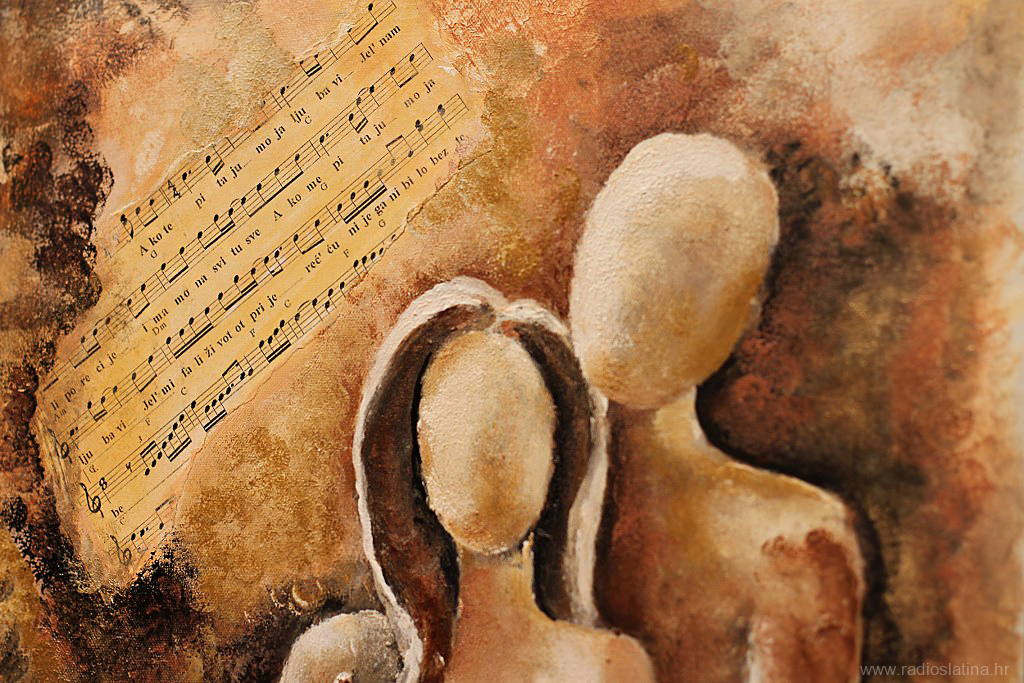 A ko te pi ta ju... mo ja lju ba vi Jel' nam
G G
i ma mo na svi tu sve A ko me pi ta ju mo ja
Dm G
u po re ci je reć' ću ni je ga ni bi lo bez te
Am F G
lju ba vi Jel' mi fa li ži vot ot pri je
G F C F C
be
C
www.radioslatina.hr